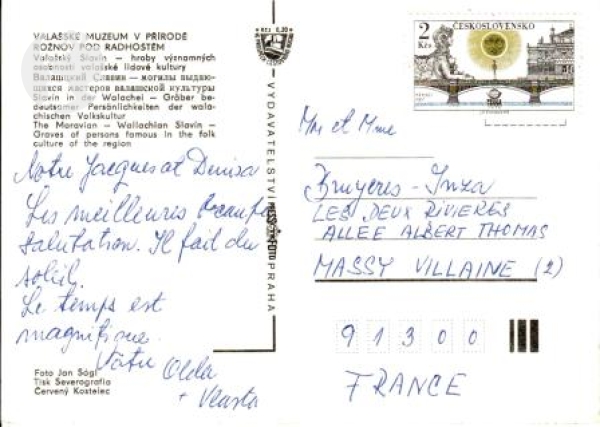 VALAŠSKÉ MUZEUM V PŘÍRODĚ
ROŽNOV POD RADHOŠTĚM
Valašský Slavín — hroby významných
osobností valašské lidové kultury
Валашский Славин — могилы выдаю-
щихся мастеров валашской культуры
Slavín in der Walachei — Gräber be-
deutsamer Persönlichkeiten der wala-
chischen Volkskultur
The Moravian — Wallachian Slavín —
Graves of persons famous in the folk
culture of the region
Notre Jacques et Denisa
Les meilleures beaucoup
salutation. Il fait du
soleil.
Le temps est
magnifique.
Olda
+ Vlasta
Foto Jan Ságl
Tisk Severografia
Červený Kostelec
Kčs 0,30
VYDAVATELSTVÍ PRESSFOTO PRAHA
2
Kčs
ČESKOSLOVENSKO
Mme et Mme
Bruyeres - Inza
LES DEUX RIVIERES
ALLEE ALBERT THOMAS
MASSY VILLAINE (2)
91300
FRANCE